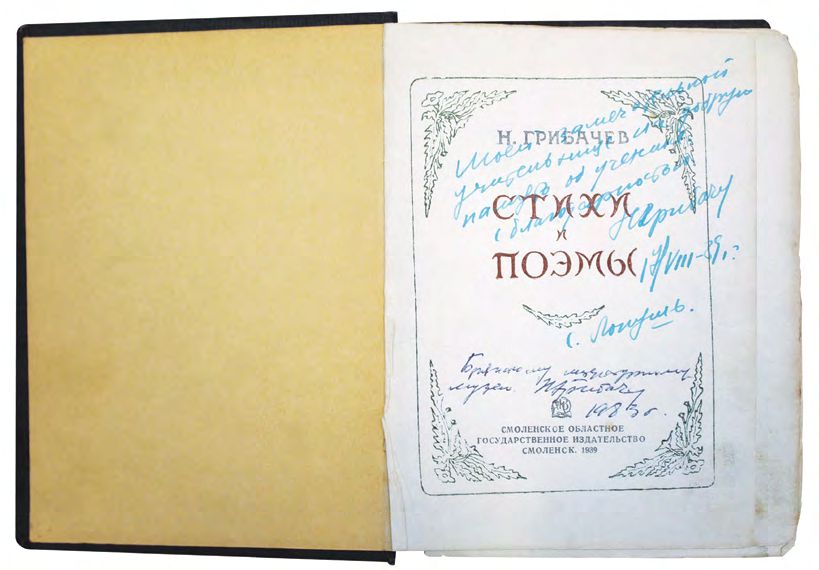 Н. ГРИБАЧЕВ
Моей замечательной
учительнице на добрую
память от ученика.
С благодарностью
НГрибачев
17/VIII-39 г.
СТИХИ
и
ПОЭМЫ
с. Лопушь.
Брянскому литературному
музею. НГрибачев
1983 г.
СМОЛЕНСКОЕ ОБЛАСТНОЕ
ГОСУДАРСТВЕННОЕ ИЗДАТЕЛЬСТВО
СМОЛЕНСК. 1939